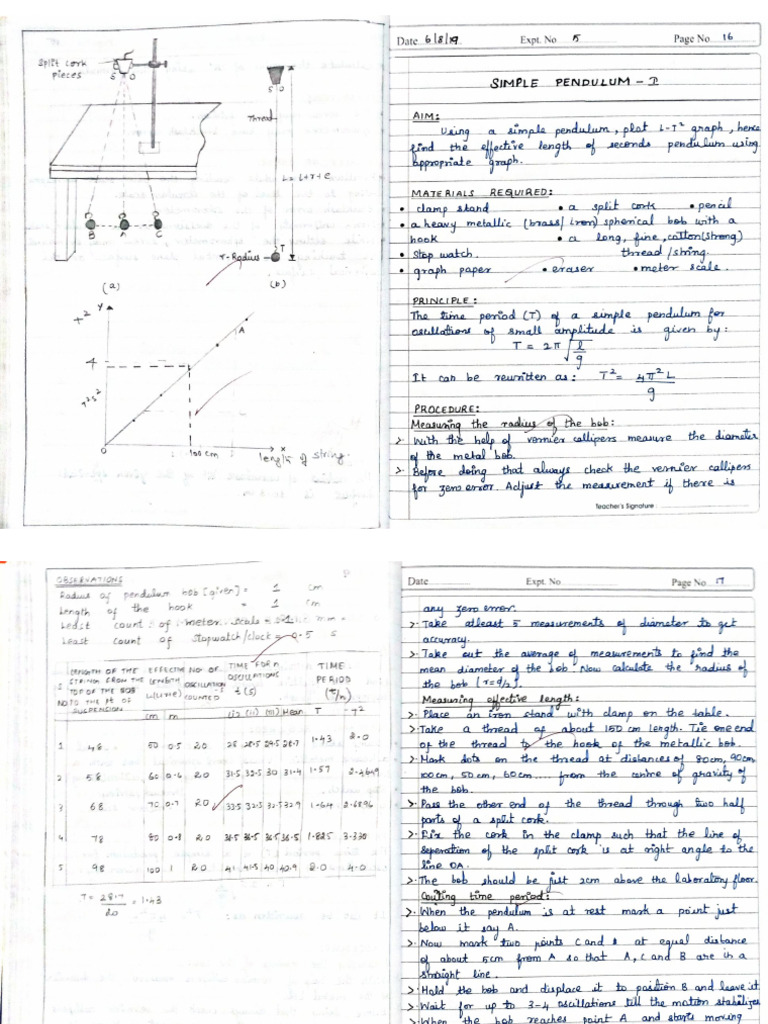 Split cork
pieces
S O
S O
Thread
L = l+r+e
B A C
T
r-Radius
(a) (b)
Y
T²
A
4
T²S²
O 100 cm X
length of string.
Date 6/8/19 Expt. No 5 Page No 16
SIMPLE PENDULUM - I
AIM:
Using a simple pendulum, plot L-T² graph, hence
find the effective length of seconds pendulum using
appropriate graph.
MATERIALS REQUIRED:
• clamp stand • a split cork • pencil
• a heavy metallic (brass/iron) spherical bob with a
hook • a long, fine, cotton (strong)
• Stop watch. thread/string.
• graph paper • eraser • meter scale.
PRINCIPLE:
The time period (T) of a simple pendulum for
oscillations of small amplitude is given by:
T = 2π √l/g
It can be rewritten as: T² = 4π²L/g
PROCEDURE:
Measuring the radius of the bob:
> With the help of vernier callipers measure the diameter
of the metal bob.
> Before doing that always check the vernier callipers
for zero error. Adjust the measurement if there is
Teacher's Signature
OBSERVATIONS
Radius of pendulum bob (given) = 1 cm
Length of the hook = 1 cm
Least count of meter scale = mm
Least count of stopwatch/clock = 0.5 s
S NO
LENGTH OF THE STRING FROM THE TOP OF THE BOB TO THE PT OF SUSPENSION
EFFECTIVE LENGTH
NO. OF OSCILLATIONS COUNTED
TIME FOR n OSCILLATIONS t(s)
TIME PERIOD (t/n)
cm m (i) (ii) (iii) Mean T T²
1 48 50 0.5 20 28 28.5 29.5 28.7 1.43 2.0
2 58 60 0.6 20 31.5 32.5 30 31.4 1.57 2.4649
3 68 70 0.7 20 33.5 32.5 32.5 32.9 1.64 2.6896
4. 78 80 0.8 20 36.5 36.5 36.5 36.5 1.825 3.330
5 98 100 1 20 41 41.5 40 40.9 2.0 4.0
T = 28.7/20 = 1.43
Date Expt. No Page No 17
any zero error.
> Take atleast 5 measurements of diameter to get
accuracy.
> Take out the average of measurements to find the
mean diameter of the bob. Now calculate the radius of
the bob (r=d/2).
Measuring effective length:
> Place an iron stand with clamp on the table.
> Take a thread of about 150 cm length. Tie one end
of the thread to the hook of the metallic bob.
> Mark dots on the thread at distances of 80cm, 90cm
100cm, 50cm, 60cm.... from the centre of gravity of
the bob.
> Pass the other end of the thread through two half
parts of a split cork.
> Fix the cork in the clamp such that the line of
seperation of the split cork is at right angle to the
line OA.
> The bob should be just 2cm above the laboratory floor.
Couting time period:
> When the pendulum is at rest mark a point just
below it say A.
> Now mark two points C and B at equal distance
of about 5cm from A so that A, C and B are in a
straight line.
> Hold the bob and displace it to position B and leave it
> Wait for up to 3-4 oscillations till the motion stabilizes
> When the bob reaches point A and starts moving